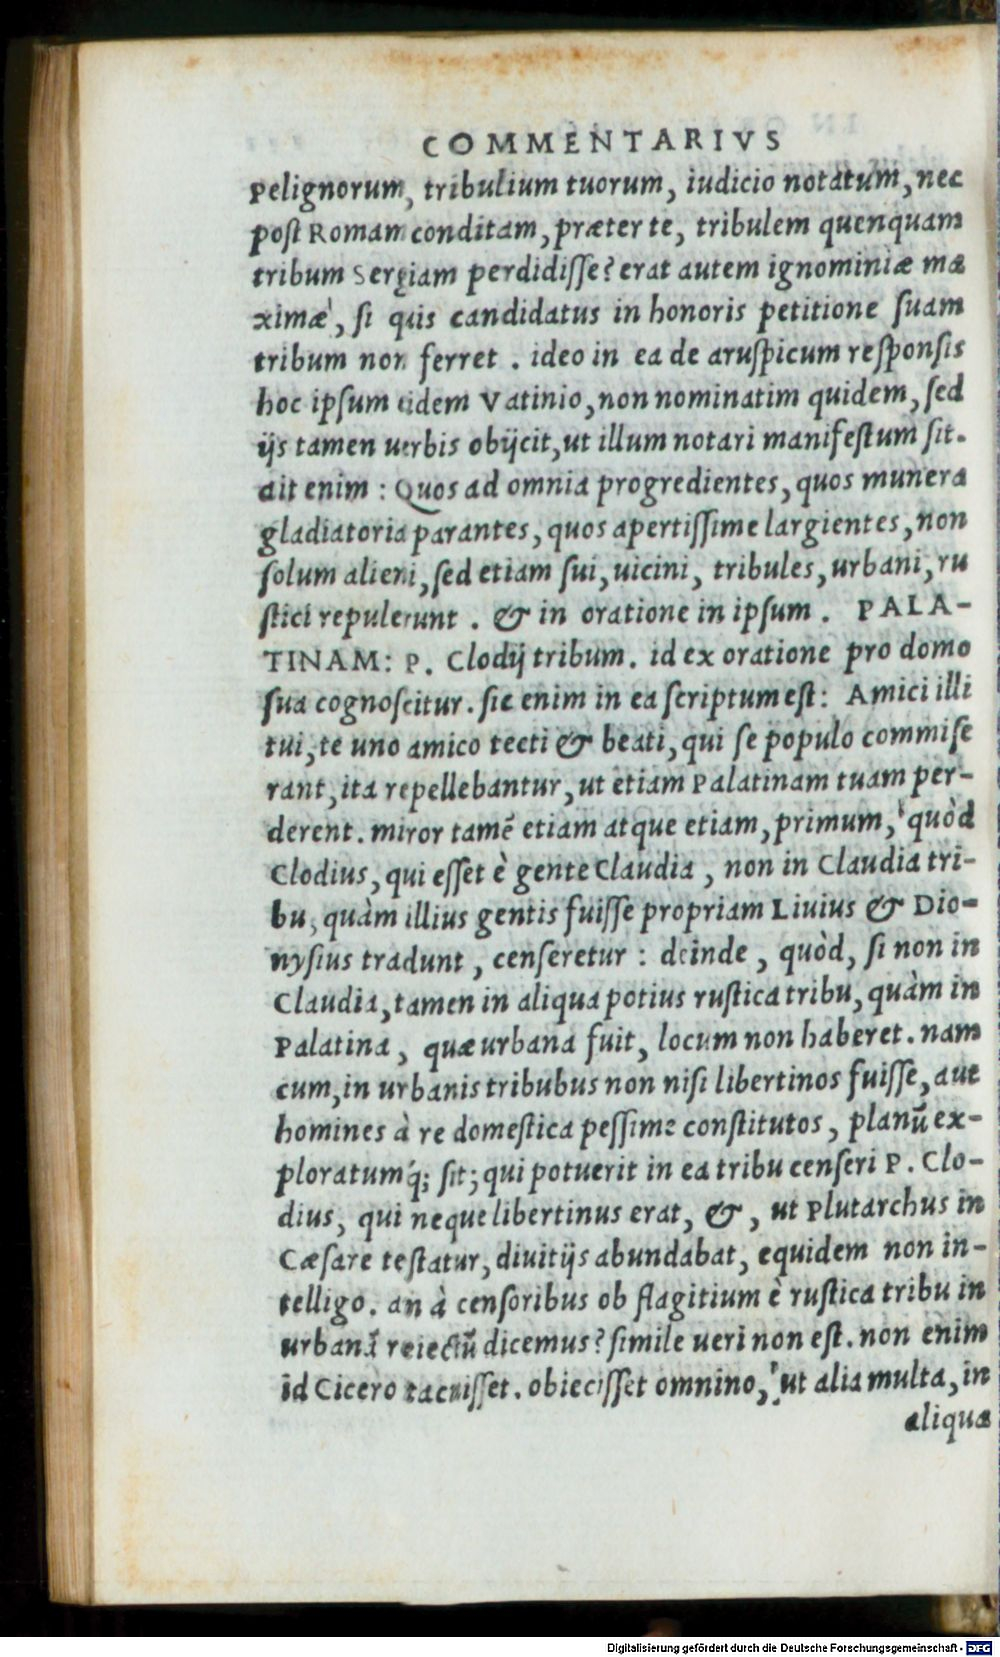 COMMENTARIVS
Pelignorum, tribulium tuorum, iudicio notatum, nec
post Romam conditam, præter te, tribulem quenquam
tribum Sergiam perdidisse? erat autem ignominiæ ma
ximæ, si quis candidatus in honoris petitione suam
tribum non ferret. ideo in ea de aruspicum responsis
hoc ipsum eidem Vatinio, non nominatim quidem, sed
ijs tamen uerbis obijcit, ut illum notari manifestum sit.
ait enim: Quos ad omnia progredientes, quos munera
gladiatoria parantes, quos apertissime largientes, non
solum alieni, sed etiam sui, uicini, tribules, urbani, ru
stici repulerunt. & in oratione in ipsum. PALA-
TINAM: P. Clodij tribum. id ex oratione pro domo
sua cognoscitur. sic enim in ea scriptum est: Amici illi
tui, te uno amico tecti & beati, qui se populo commise
rant, ita repellebantur, ut etiam Palatinam tuam per-
derent. miror tamē etiam atque etiam, primum, quòd
Clodius, qui esset è gente Claudia, non in Claudia tri-
bu, quàm illius gentis fuisse propriam Liuius & Dio-
nysius tradunt, censeretur: deinde, quòd, si non in
Claudia, tamen in aliqua potius rustica tribu, quàm in
Palatina, quæ urbana fuit, locum non haberet. nam
cum, in urbanis tribubus non nisi libertinos fuisse, aut
homines à re domestica pessime constitutos, planū ex-
ploratumq́; sit; qui potuerit in ea tribu censeri P. Clo-
dius, qui neque libertinus erat, &, ut Plutarchus in
Cæsare testatur, diuitijs abundabat, equidem non in-
telligo. an à censoribus ob flagitium è rustica tribu in
urbanā reiectū dicemus? simile ueri non est. non enim
id Cicero tacuisset. obiecisset omnino, ut alia multa, in
aliqua
Digitalisierung gefördert durch die Deutsche Forschungsgemeinschaft - DFG